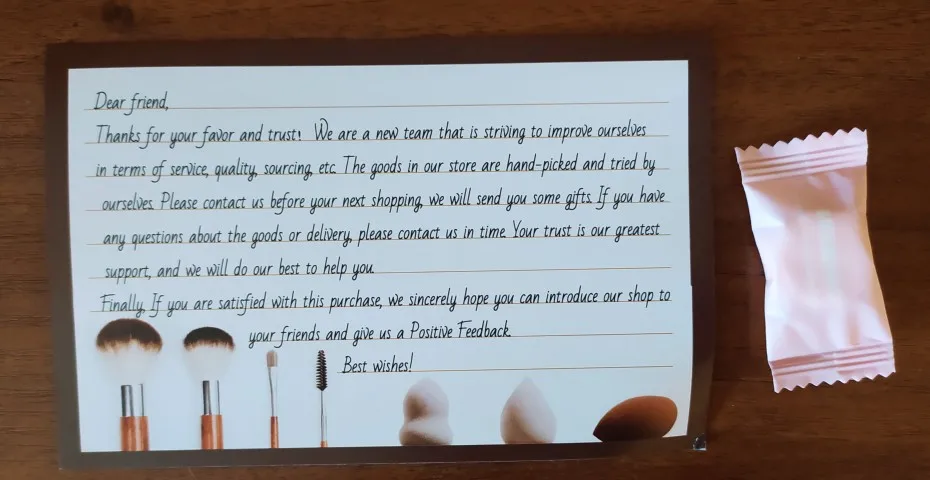 Dear friend,
Thanks for your favor and trust! We are a new team that is striving to improve ourselves
in terms of service, quality, sourcing, etc. The goods in our store are hand-picked and tried by
ourselves. Please contact us before your next shopping, we will send you some gifts. If you have
any questions about the goods or delivery, please contact us in time. Your trust is our greatest
support, and we will do our best to help you.
Finally, If you are satisfied with this purchase, we sincerely hope you can introduce our shop to
your friends and give us a Positive Feedback.
Best wishes!